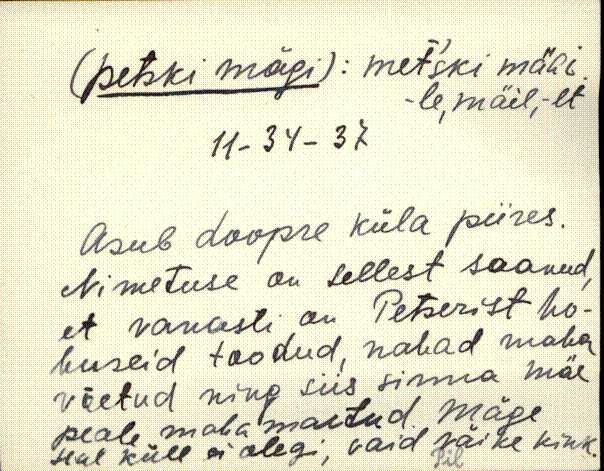 (petski mägi): metški mähi
-le, mäil, -lt
11-34-37
Asub doopre küla piires.
Nimetuse on sellest saanud,
et vanasti on Petserist ho-
buseid toodud, nahad maha
võetud ning siis sinna mäe
peale maha maetud. Mäge
seal küll ei olegi, vaid väike kink.